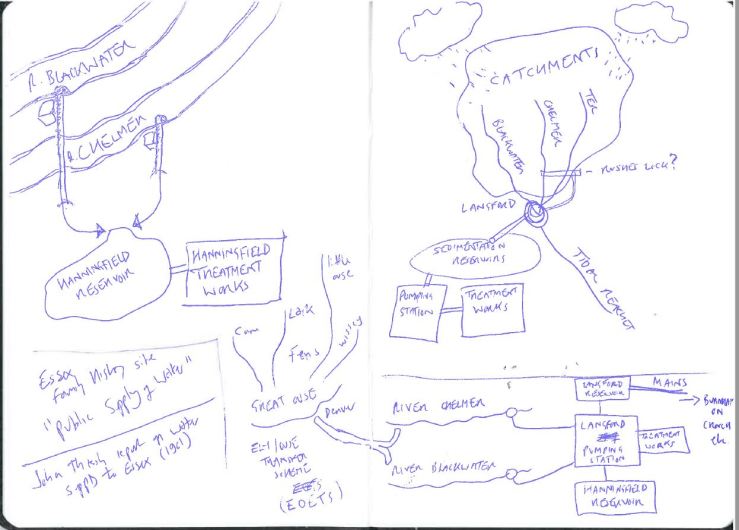 R. BLACKWATER
R. CHELMER
HANNINGFIELD
RESERVOIR
HANNINGFIELD
TREATMENT
WORKS
Essex
Family History site
"Public Supply of Water"
John Thresh report on water
supply to Essex (1901)
Cam
Lark
little
ouse
Fens
wissey
GREAT OUSE
Denver
ELY/OUSE
TRANSFER
SCHEME
(EOETS)
CATCHMENTS
BLACKWATER
CHELMER
TER
RUSHES LOCK?
LANGFORD
SEDIMENTATION
RESERVOIRS
PUMPING
STATION
TREATMENT
WORKS
TIDAL
RIVER CHELMER
RIVER BLACKWATER
LANGFORD
RESERVOIR
MAINS
BURNHAM
ON
CROUCH
etc
LANGFORD
PUMPING
STATION
TREATMENT
WORKS
HANNINGFIELD
RESERVOIR